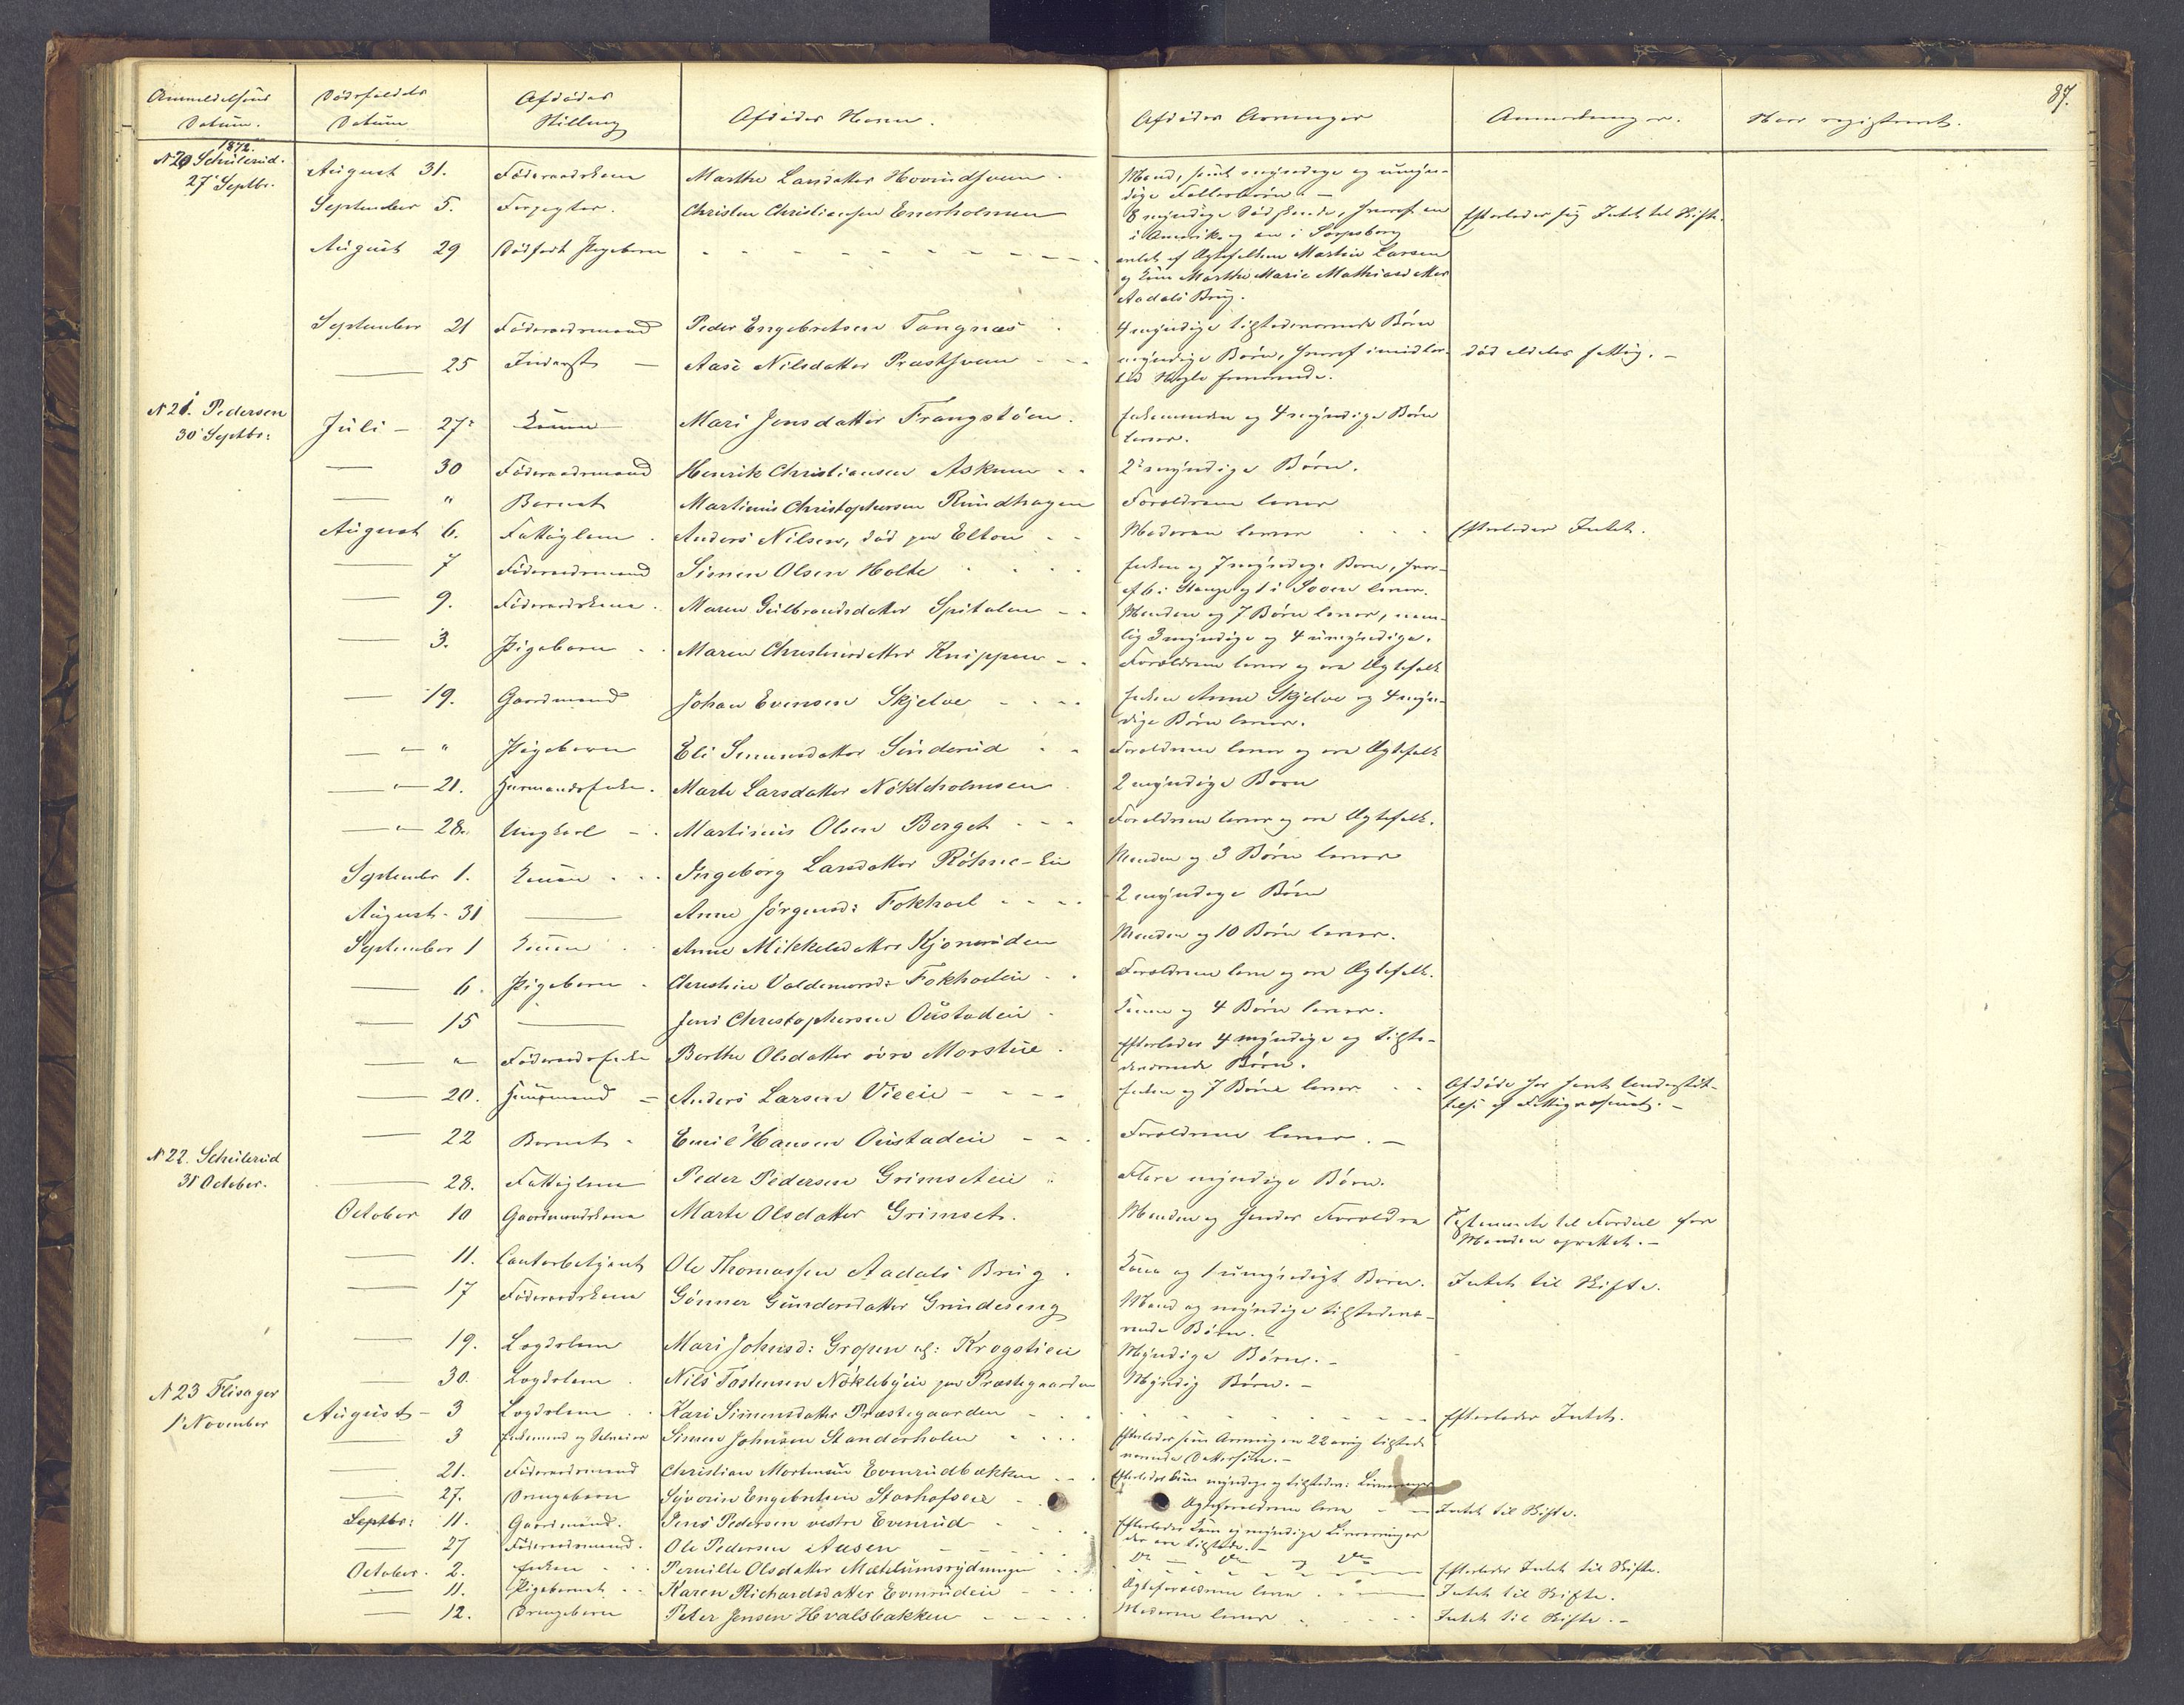 87.
Anmeldelsens Datum. Dødsfaldets Datum Afdødes Stilling Afdødes Navn. Afdødes Arvinger Anmerkninger. Hvor registreret.
1872.
N 20 Schülerud. August 31. Föderaadskone Marthe Larsdatter Hovindsveen. Mand, samt myndige og umyn-
27' Septbr. dige Fællesbørn. -
September 5. Forpagter. Christen Christiansen Enerholmen 8 myndige Sødskende, hvoraf en Efterlader sig Intet til Skifte.
i Amerika og en i Sarpsborg
August 29 Dödfødt Pigebarn - - - - - - - - avlet af Ægtefolkene Martin Larsen
og Kone Marthe Marie Mathiasdatter
Aadals Brug.
September 21 Föderaadsmand Peder Engebretsen Tangnæs 4 myndige tilstedeværende Børn
— 25 Inderst — Aase Nilsdatter Præstsveen - - myndige Børn, hvoraf imidler- død aldeles fattig. -
tid Nogle fraværende.
N 21. Pedersen Juli - 27: Kone Mari Jensdatter Frangstøen. Enkemanden og 4 myndige Børn
30' Septbr: lever.
— 30 Föderaadsmand Henrik Christiansen Askum - - 2 myndige Børn.
— " Barnet Martinius Christophersen Rundhagen Forældrene lever
August 6. Fattiglem. Anders Nilsen, død paa Elton - - Moderen lever - - - Efterlader Intet.
— 7 Föderaadsmand Simen Olsen Holte - - - - Enken og 7 myndige Børn, hvor-
af 6 i Stange og 1 i lever.
— 9. Föderaadskone. Maren Gulbrandsdatter Spitalen - - Manden og 7 Børn lever, nem-
lig 3 myndige og 4 umyndige.
— 3. Pigebarn - - Maren Christiansdatter Knippen - - Forældrene lever og ere Ægtefolk
— 19. Gaardmand Johan Evensen Skjelve - - - - Enken Anne Skjelve og 4 myn-
dige Børn lever.
— " " Pigebarn Eli Simensdatter Sinderud - - Forældrene lever og ere Ægtefolk
— " 21. Huusmandsenke. Marte Larsdatter Nökleholmsen 2 myndige Børn
— " 28. Ungkarl - - Martinius Olsen Berget - - - Forældrene lever og ere Ægtefolk.
September 1. Konen - - - Ingeborg Larsdatter Röhne-Eie Manden og 3 Børn lever
August - 31 — Anne Jörgensd: Fokhoel - - - - 2 myndige Børn
September 1 Konen - - Anne Mikkelsdatter Kjonerüden Manden og 10 Børn lever.
— 6. Pigebarn - Christine Valdemarsd: Fokholeie - - Forældrene leve og ere Ægtefolk.
— 15 — Jens Christophersen Oustadeie - Konen og 4 Børn lever.
— " Föderaadsenke Berthe Olsdatter øvre Morstue - Efterlader 4 myndige og tilste-
deværende Børn.
— 20. Huusmand - Anders Larsen Vieeie - - - - Enken og 7 Børn lever - - Afdøde har havt Understøt-
telse af Fattigvæsenet. -
— 22 Barnet - Emil Hansen Oustadeie - - - Forældrene lever. -
N 22. Schülerud — 28. Fattiglem Peder Pedersen Grimseteie Flere myndige Børn.
31 October.
October 10 Gaardmandskone Marte Olsdatter Grimset. Manden og hendes Forældre Testamente til Fordeel for
Manden oprettet. -
— 11. Contorbetjent Ole Thomassen Aadals Brug. Kone og 1 umyndigt Barn. Intet til Skifte.
— 17 Föderaadskone Gönner Gundersdatter Grindeseng Mand og myndige tilstedevæ-
rende Børn. -
— 19. Lægdslem Mari Johnsd: Gropen af: Krogstieie Myndige Børn. -
— 30. Lægdslem. Nils Tostensen Nöklebyeie paa Præstegaarden Myndig Børn. -
N 23 Flisager August - 3 Lægdslem Kari Simensdatter Præstegaarden - - - - - - - - Efterlader Intet.
1' November
— 3 Enkemand og Simen Johnsen Standerholen - - - Efterlader som Arving en 22 aarig tilstede
værende Dattersøn. -
— 21. Föderaadsmand Christian Mortensen Evenrudbakken - - - Efterlader Kun myndige og tilstedev: Livsarvinger
— 27. Drengebarn Syverin Engebretsen Storhofseie - Ægteforældrene leve - - Intet til Skifte.
Septbr: 11. Gaardmand. Jens Pedersen vestre Evenrud - - - Efterlader Kun myndige Livsarvinger
— 27 Föderaadsmand. Ole Pedersen Aasen - - - - der ere tilstede. -
October. 2. Enken - - Pernille Olsdatter Mæhlumsrydningen - - Do — Do og Do Efterlader Intet til Skifte.
— 11. Pigebarnet - - Karen Richardsdatter Evenrudeie - - - - Ægteforældrene leve - — Intet til Skifte.
— 12. Drengebarn Peter Jensen Hvalsbakken - - - - - Moderen lever - - - - - Intet til Skifte. -